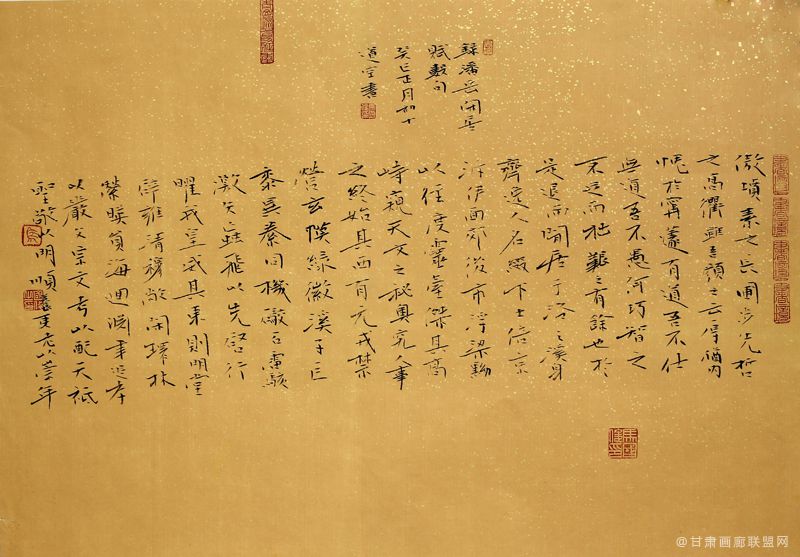 傲墳素之長圃步先哲
之高衢雖吾顏之云厚猶內
愧於甯蘧有道吾不仕
無道吾不愚何巧智之
不足而拙艱之有餘也於
是退而閒居于洛之涘身
齊逸人名綴下士倍京
泝伊面郊後市浮梁黝
以徑度靈臺傑其高
峙窺天文之秘奧究人事
之終始其西有元戎禁
營玄幙綠徽溪子巨
黍異絭同機礮石雷駭
激矢蝱飛以先啓行
曜我皇威其東則明堂
辟雍清穆敞閒環林
縈暎負海迴淵聿追孝
以嚴父宗文考以配天祗
聖敬以明順養更老以崇年
錄潘岳閒居
賦數句
癸巳正月初十
道空書
@甘肃画廊联盟网